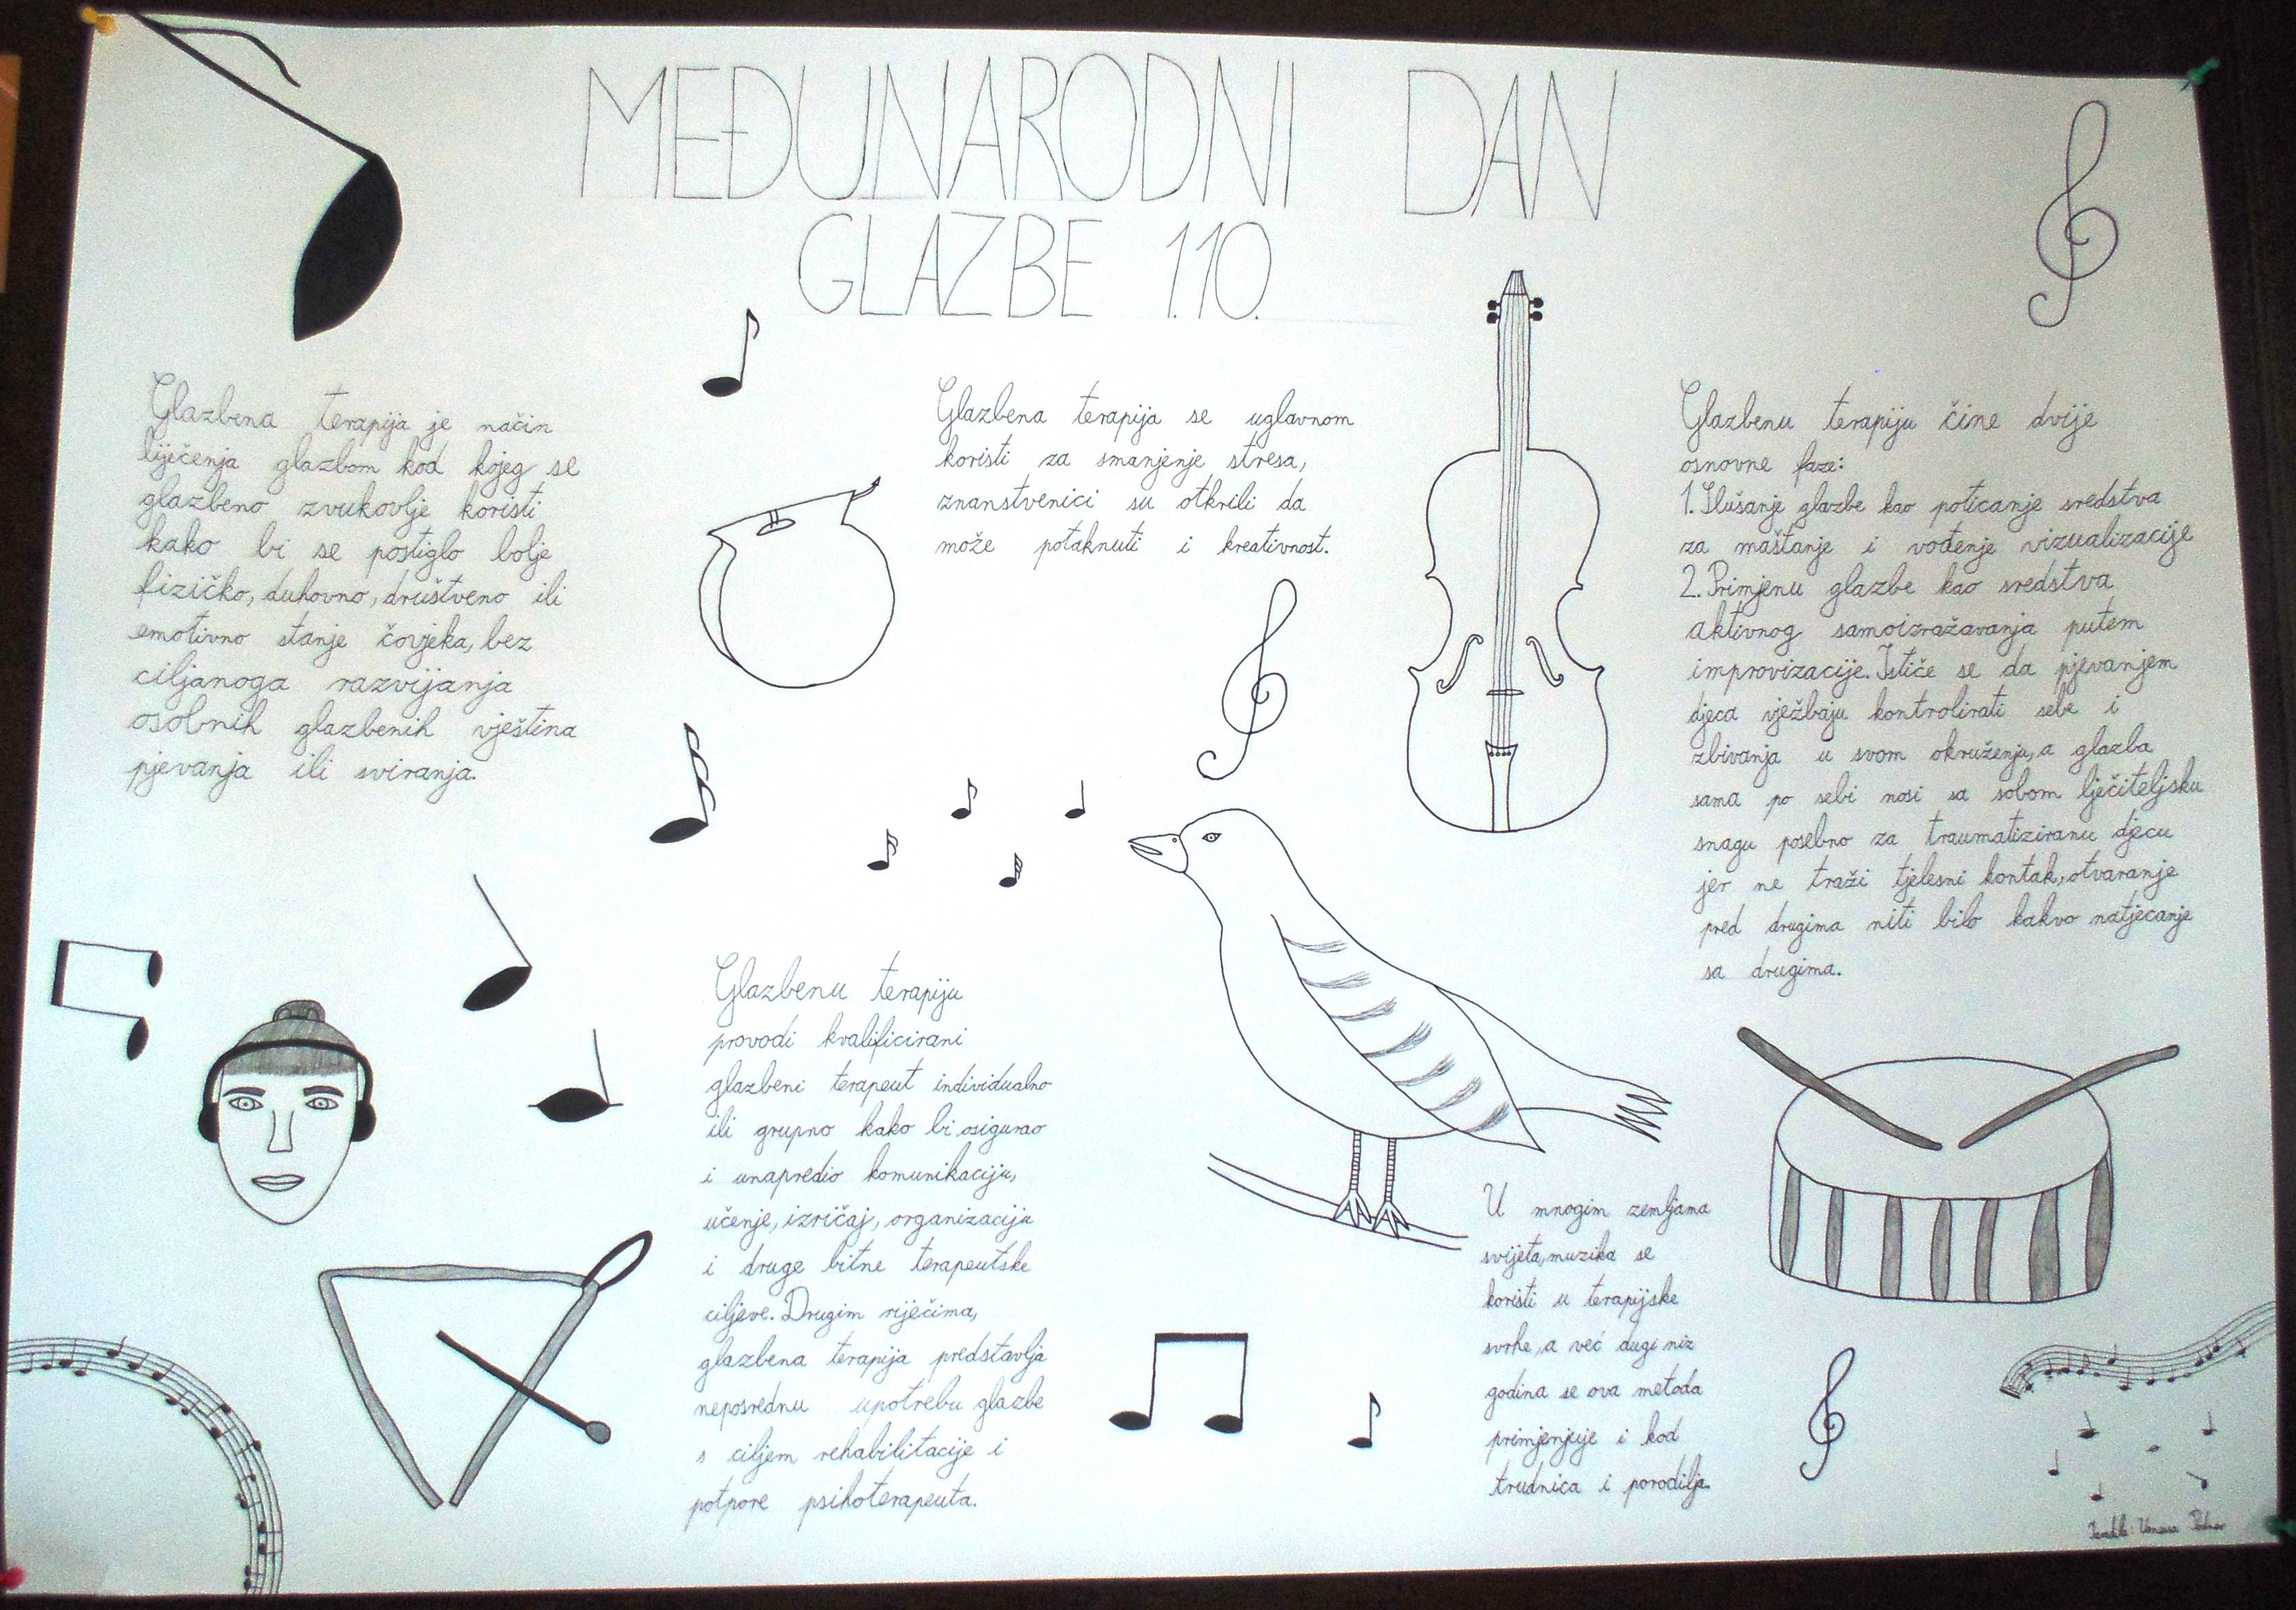 MEĐUNARODNI DAN
GLAZBE 1.10.
Glazbena terapija je način
liječenja glazbom kod kojeg se
glazbeno zvukovlje koristi
kako bi se postiglo bolje
fizičko, duhovno, društveno ili
emotivno stanje čovjeka, bez
ciljanoga razvijanja
osobnih glazbenih vještina
pjevanja ili sviranja.
Glazbena terapija se uglavnom
koristi za smanjenje stresa,
znanstvenici su otkrili da
može potaknuti i kreativnost.
Glazbenu terapiju čine dvije
osnovne faze:
1. Slušanje glazbe kao poticanje sredstva
za maštanje i vođenje vizualizacije
2. Primjenu glazbe kao sredstva
aktivnog samoizražavanja putem
improvizacije. Ističe se da pjevanjem
djeca vježbaju kontrolirati sebe i
zbivanja u svom okruženju, a glazba
sama po sebi nosi sa sobom lječiteljsku
snagu posebno za traumatiziranu djecu
jer ne traži tjelesni kontak, otvaranje
pred drugima niti bilo kakvo natjecanje
sa drugima.
Glazbenu terapiju
provodi kvalificirani
glazbeni terapeut individualno
ili grupno kako bi osigurao
i unapredio komunikaciju,
učenje, izričaj, organizaciju
i druge bitne terapeutske
ciljeve. Drugim riječima,
glazbena terapija predstavlja
neposrednu upotrebu glazbe
s ciljem rehabilitacije i
potpore psihoterapeuta.
U mnogim zemljama
svijeta, muzika se
koristi u terapijske
svrhe, a već dugi niz
godina se ova metoda
primjenjuje i kod
trudnica i porodilja.